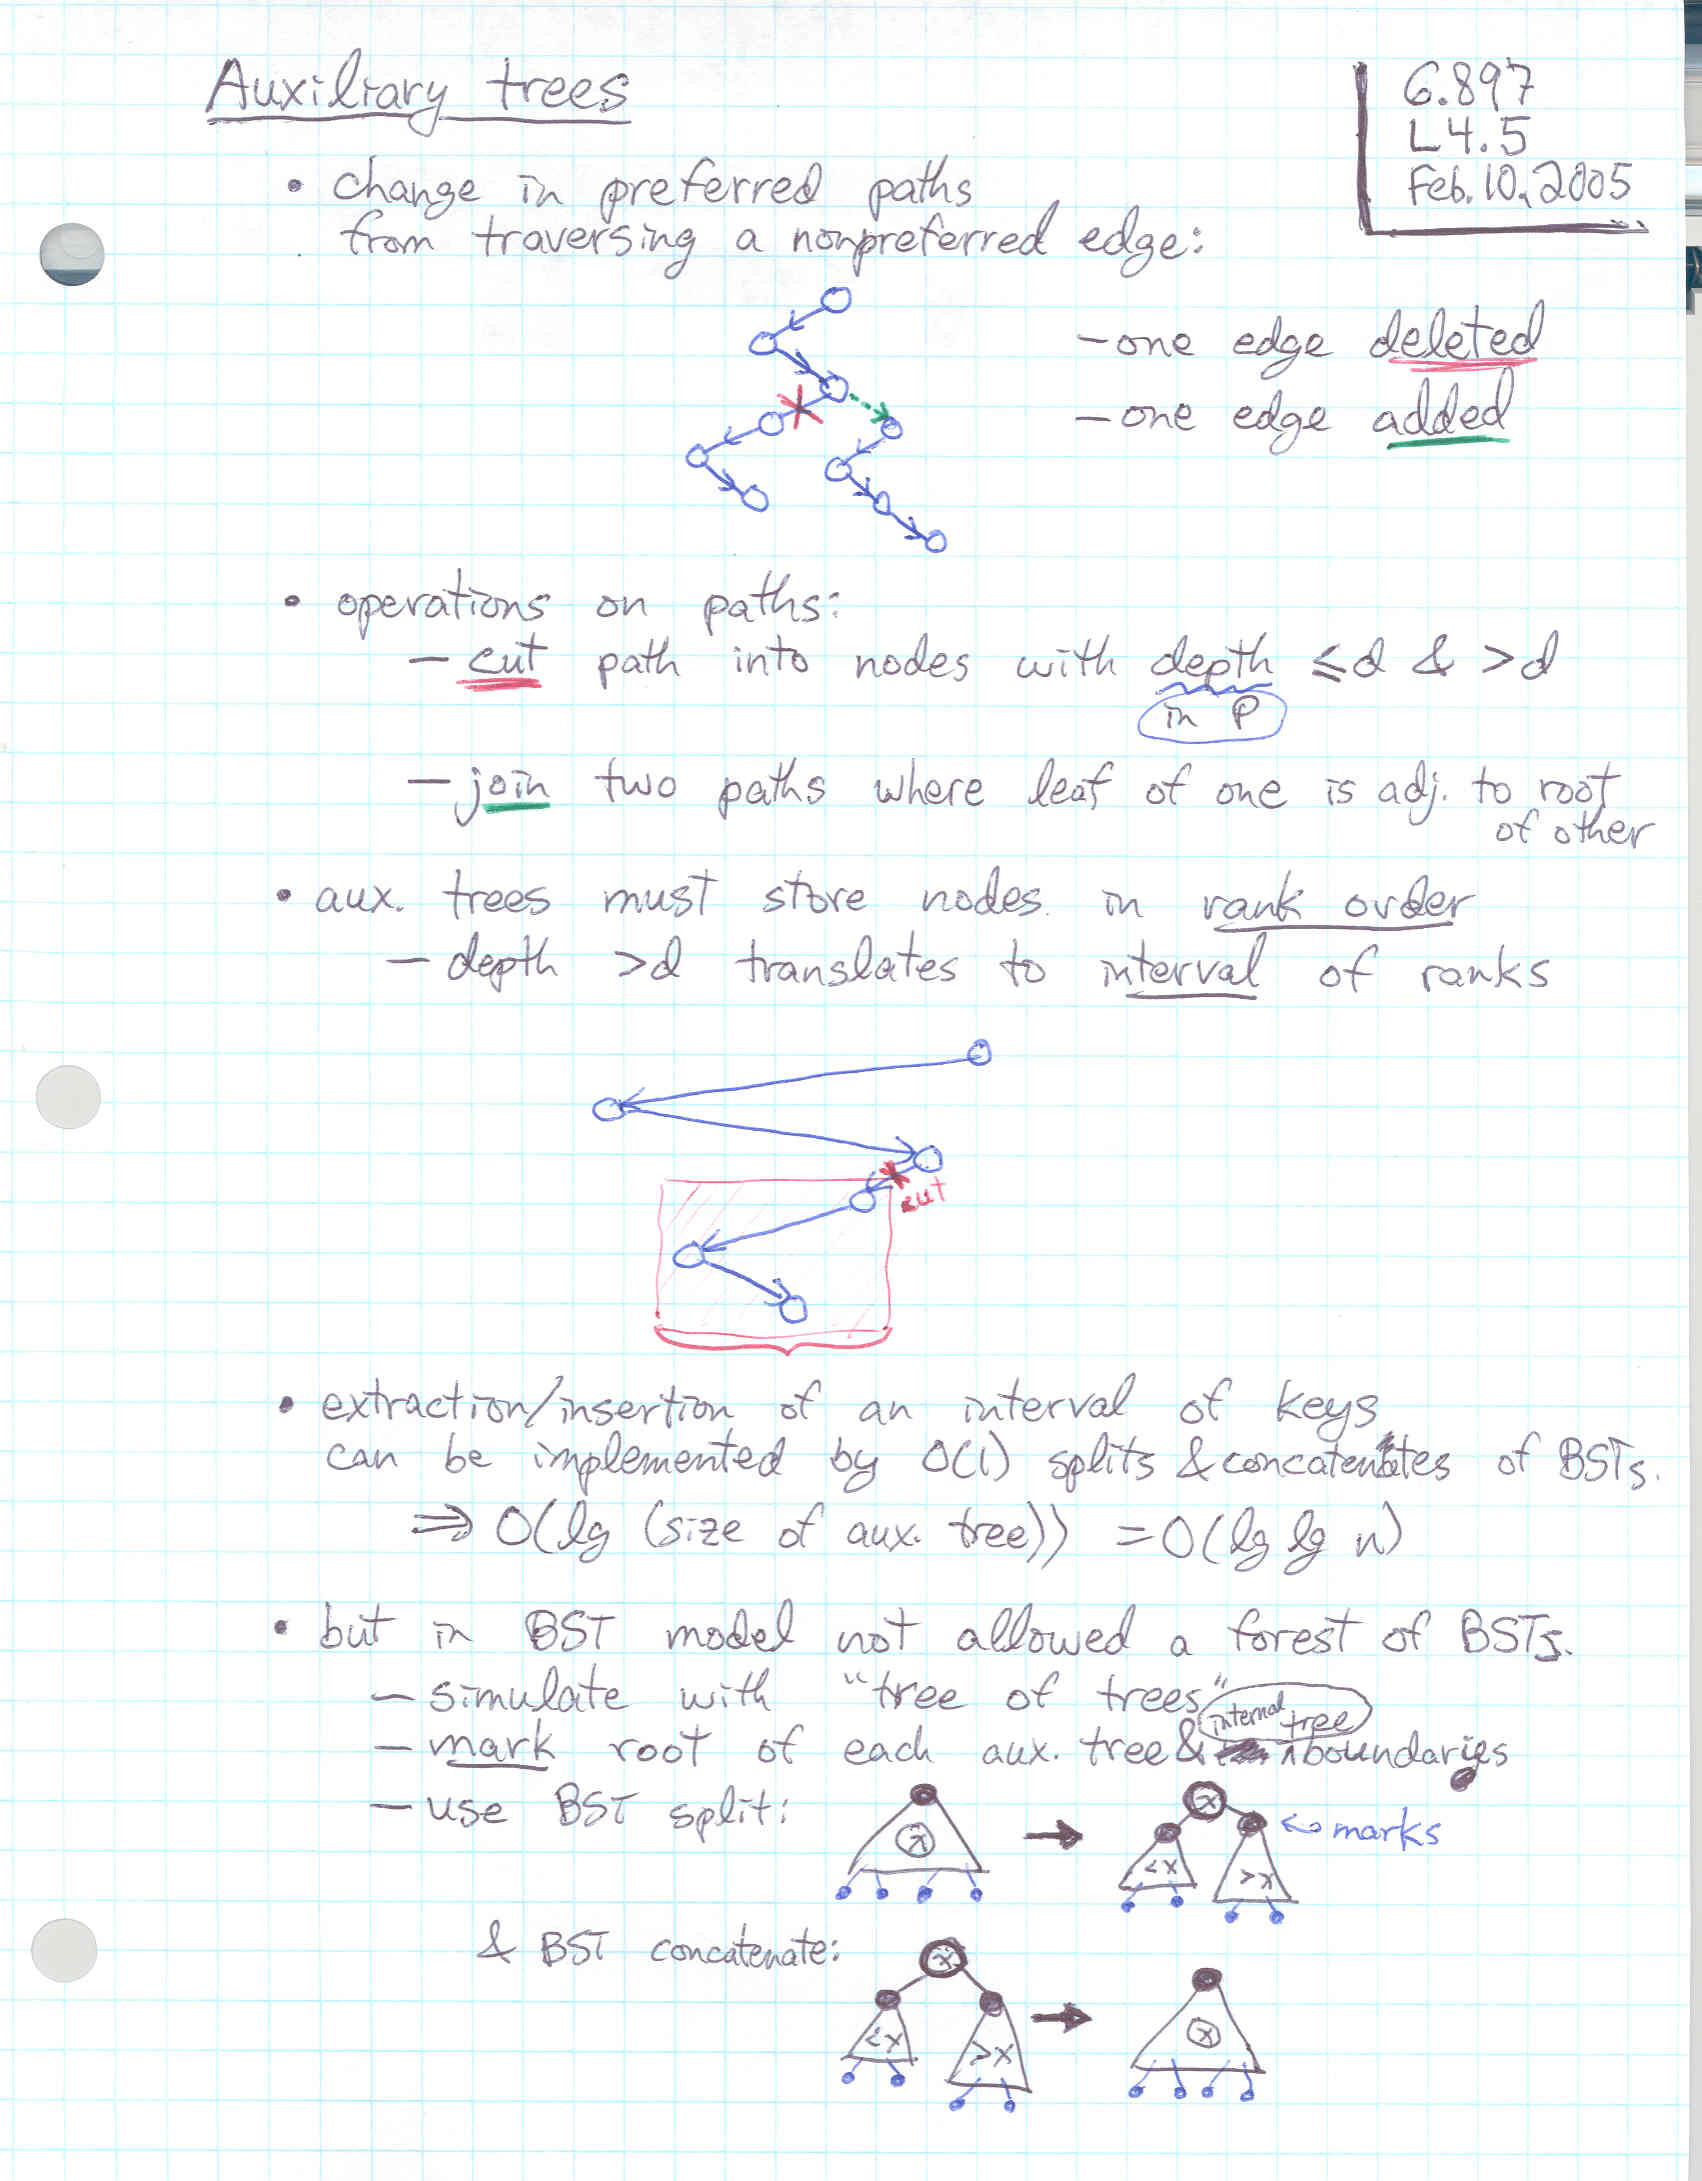 Auxiliary trees
6.897
L4.5
Feb. 10, 2005
• change in preferred paths
from traversing a nonpreferred edge:
– one edge deleted
– one edge added
• operations on paths:
– cut path into nodes with depth ≤d & >d
in P
– join two paths where leaf of one is adj. to root
of other
• aux. trees must store nodes in rank order
– depth >d translates to interval of ranks
cut
• extraction/insertion of an interval of keys
can be implemented by O(1) splits & concatenates of BSTs.
⇒ O(lg (size of aux. tree)) = O(lg lg n)
• but in BST model not allowed a forest of BSTs.
– simulate with "tree of trees"
internal tree
– mark root of each aux. tree & boundaries
– use BST split:
x
→
x
<x
>x
← marks
& BST concatenate:
x
<x
>x
→
x